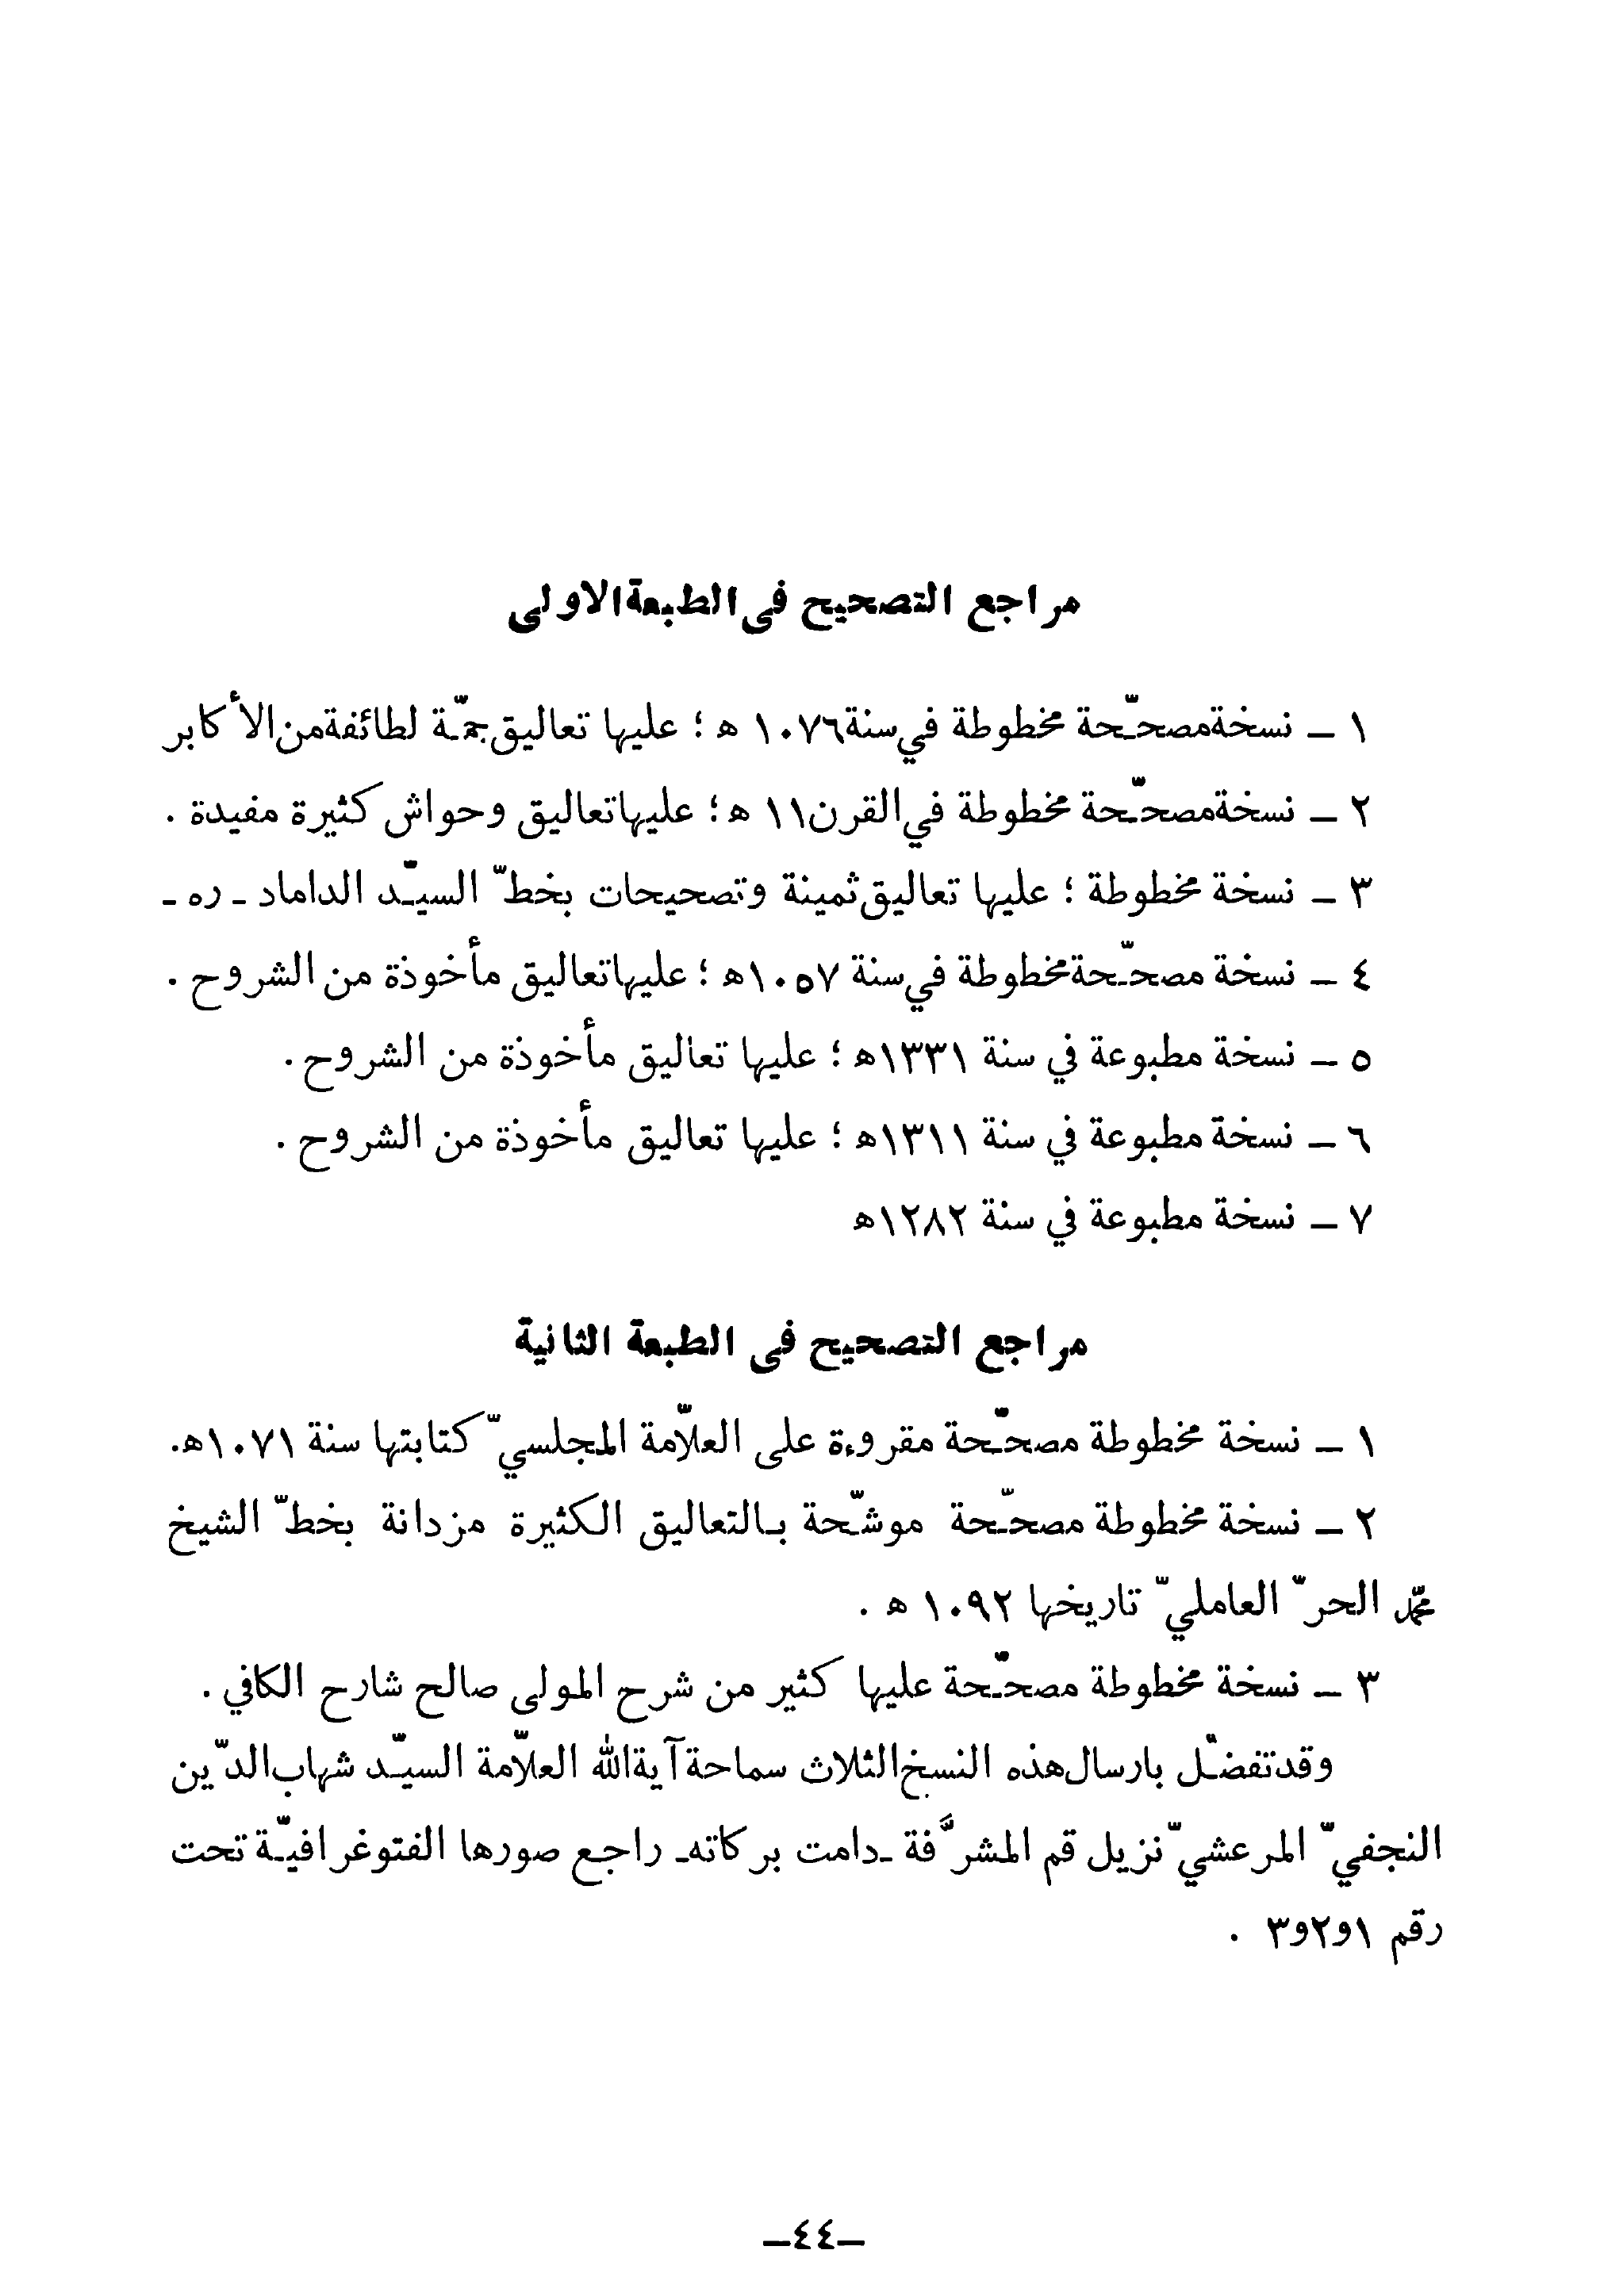 مراجع التصحيح فى الطبعة الاولى
١ ـ نسخة مصحّحة مخطوطة في سنة ١٠٧٦ ه ؛ عليها تعاليق جمّة لطائفة من الأكابر
٢ ـ نسخة مصحّحة مخطوطة في القرن ١١ ه ؛ عليها تعاليق وحواش كثيرة مفيدة .
٣ ـ نسخة مخطوطة ؛ عليها تعاليق ثمينة وتصحيحات بخطّ السيّد الداماد ـ ره ـ
٤ ـ نسخة مصحّحة مخطوطة في سنة ١٠٥٧ه ؛ عليها تعاليق مأخوذة من الشروح .
٥ ـ نسخة مطبوعة في سنة ١٣٣١ه ؛ عليها تعاليق مأخوذة من الشروح .
٦ ـ نسخة مطبوعة في سنة ١٣١١ه ؛ عليها تعاليق مأخوذة من الشروح .
٧ ـ نسخة مطبوعة في سنة ١٢٨٢ه
مراجع التصحيح فى الطبعة الثانية
١ ـ نسخة مخطوطة مصحّحة مقروءة على العلاّمة المجلسيّ كتابتها سنة ١٠٧١ه.
٢ ـ نسخة مخطوطة مصحّحة موشّحة بالتعاليق الكثيرة مزدانة بخطّ الشيخ
محمّد الحرّ العامليّ تاريخها ١٠٩٢ ه .
٣ ـ نسخة مخطوطة مصحّحة عليها كثير من شرح المولى صالح شارح الكافي .
وقد تفضّل بارسال هذه النسخ الثلاث سماحة آية الله العلاّمة السيّد شهاب الدّين
النجفيّ المرعشيّ نزيل قم المشرّفة ـ دامت بركاته ـ راجع صورها الفتوغرافيّة تحت
رقم ١و٢و٣ .
ـ٤٤ـ